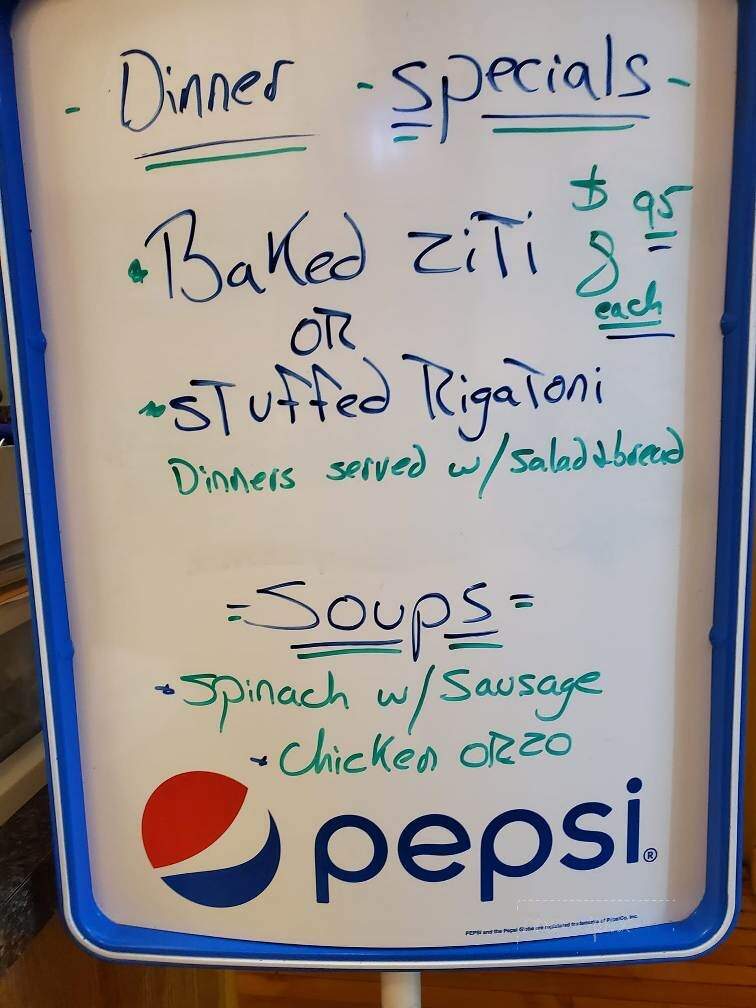 - Dinner - Specials -
• Baked Ziti $8 95 each
OR
• Stuffed Rigatoni
Dinners served w/ salad & bread
= Soups =
• Spinach w/ Sausage
• Chicken ORZO
pepsi®
PEPSI and the Pepsi Globe are registered trademarks of PepsiCo, Inc.